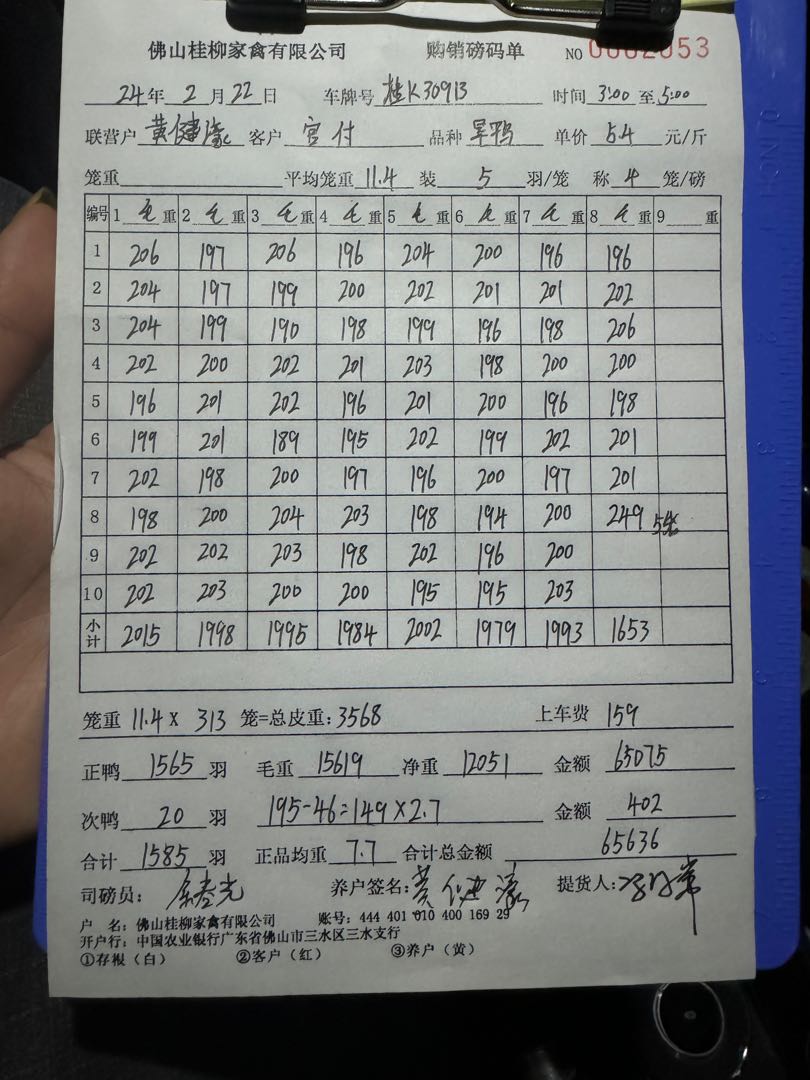 佛山桂柳家禽有限公司 购销磅码单 NO 0002053
24年 2月 22日 车牌号 桂K30913 时间 3:00 至 5:00
联营户 黄健濠 客户 宫付 品种 旱鸭 单价 5.4 元/斤
笼重 平均笼重 11.4 装 5 羽/笼 称 4 笼/磅
编号 1 毛 重 2 毛 重 3 毛 重 4 毛 重 5 毛 重 6 毛 重 7 毛 重 8 毛 重 9 重
1 206 197 206 196 204 200 196 196
2 204 197 199 200 202 201 201 202
3 204 199 190 198 199 196 198 206
4 202 200 202 201 203 198 200 200
5 196 201 202 196 201 200 196 198
6 199 201 189 195 202 199 202 201
7 202 198 200 197 196 200 197 201
8 198 200 204 203 198 194 200 249 5笼
9 202 202 203 198 202 196 200
10 202 203 200 200 195 195 203
小计 2015 1998 1995 1984 2002 1979 1993 1653
笼重 11.4 X 313 笼=总皮重: 3568 上车费 159
正鸭 1565 羽 毛重 15619 净重 12051 金额 65075
次鸭 20 羽 195-46=149×2.7 金额 402
合计 1585 羽 正品均重 7.7 合计总金额 65636
司磅员: 养户签名: 黄健濠 提货人:
户 名: 佛山桂柳家禽有限公司 账号: 444 401 010 400 169 29
开户行: 中国农业银行广东省佛山市三水区三水支行
①存根(白) ②客户(红) ③养户(黄)